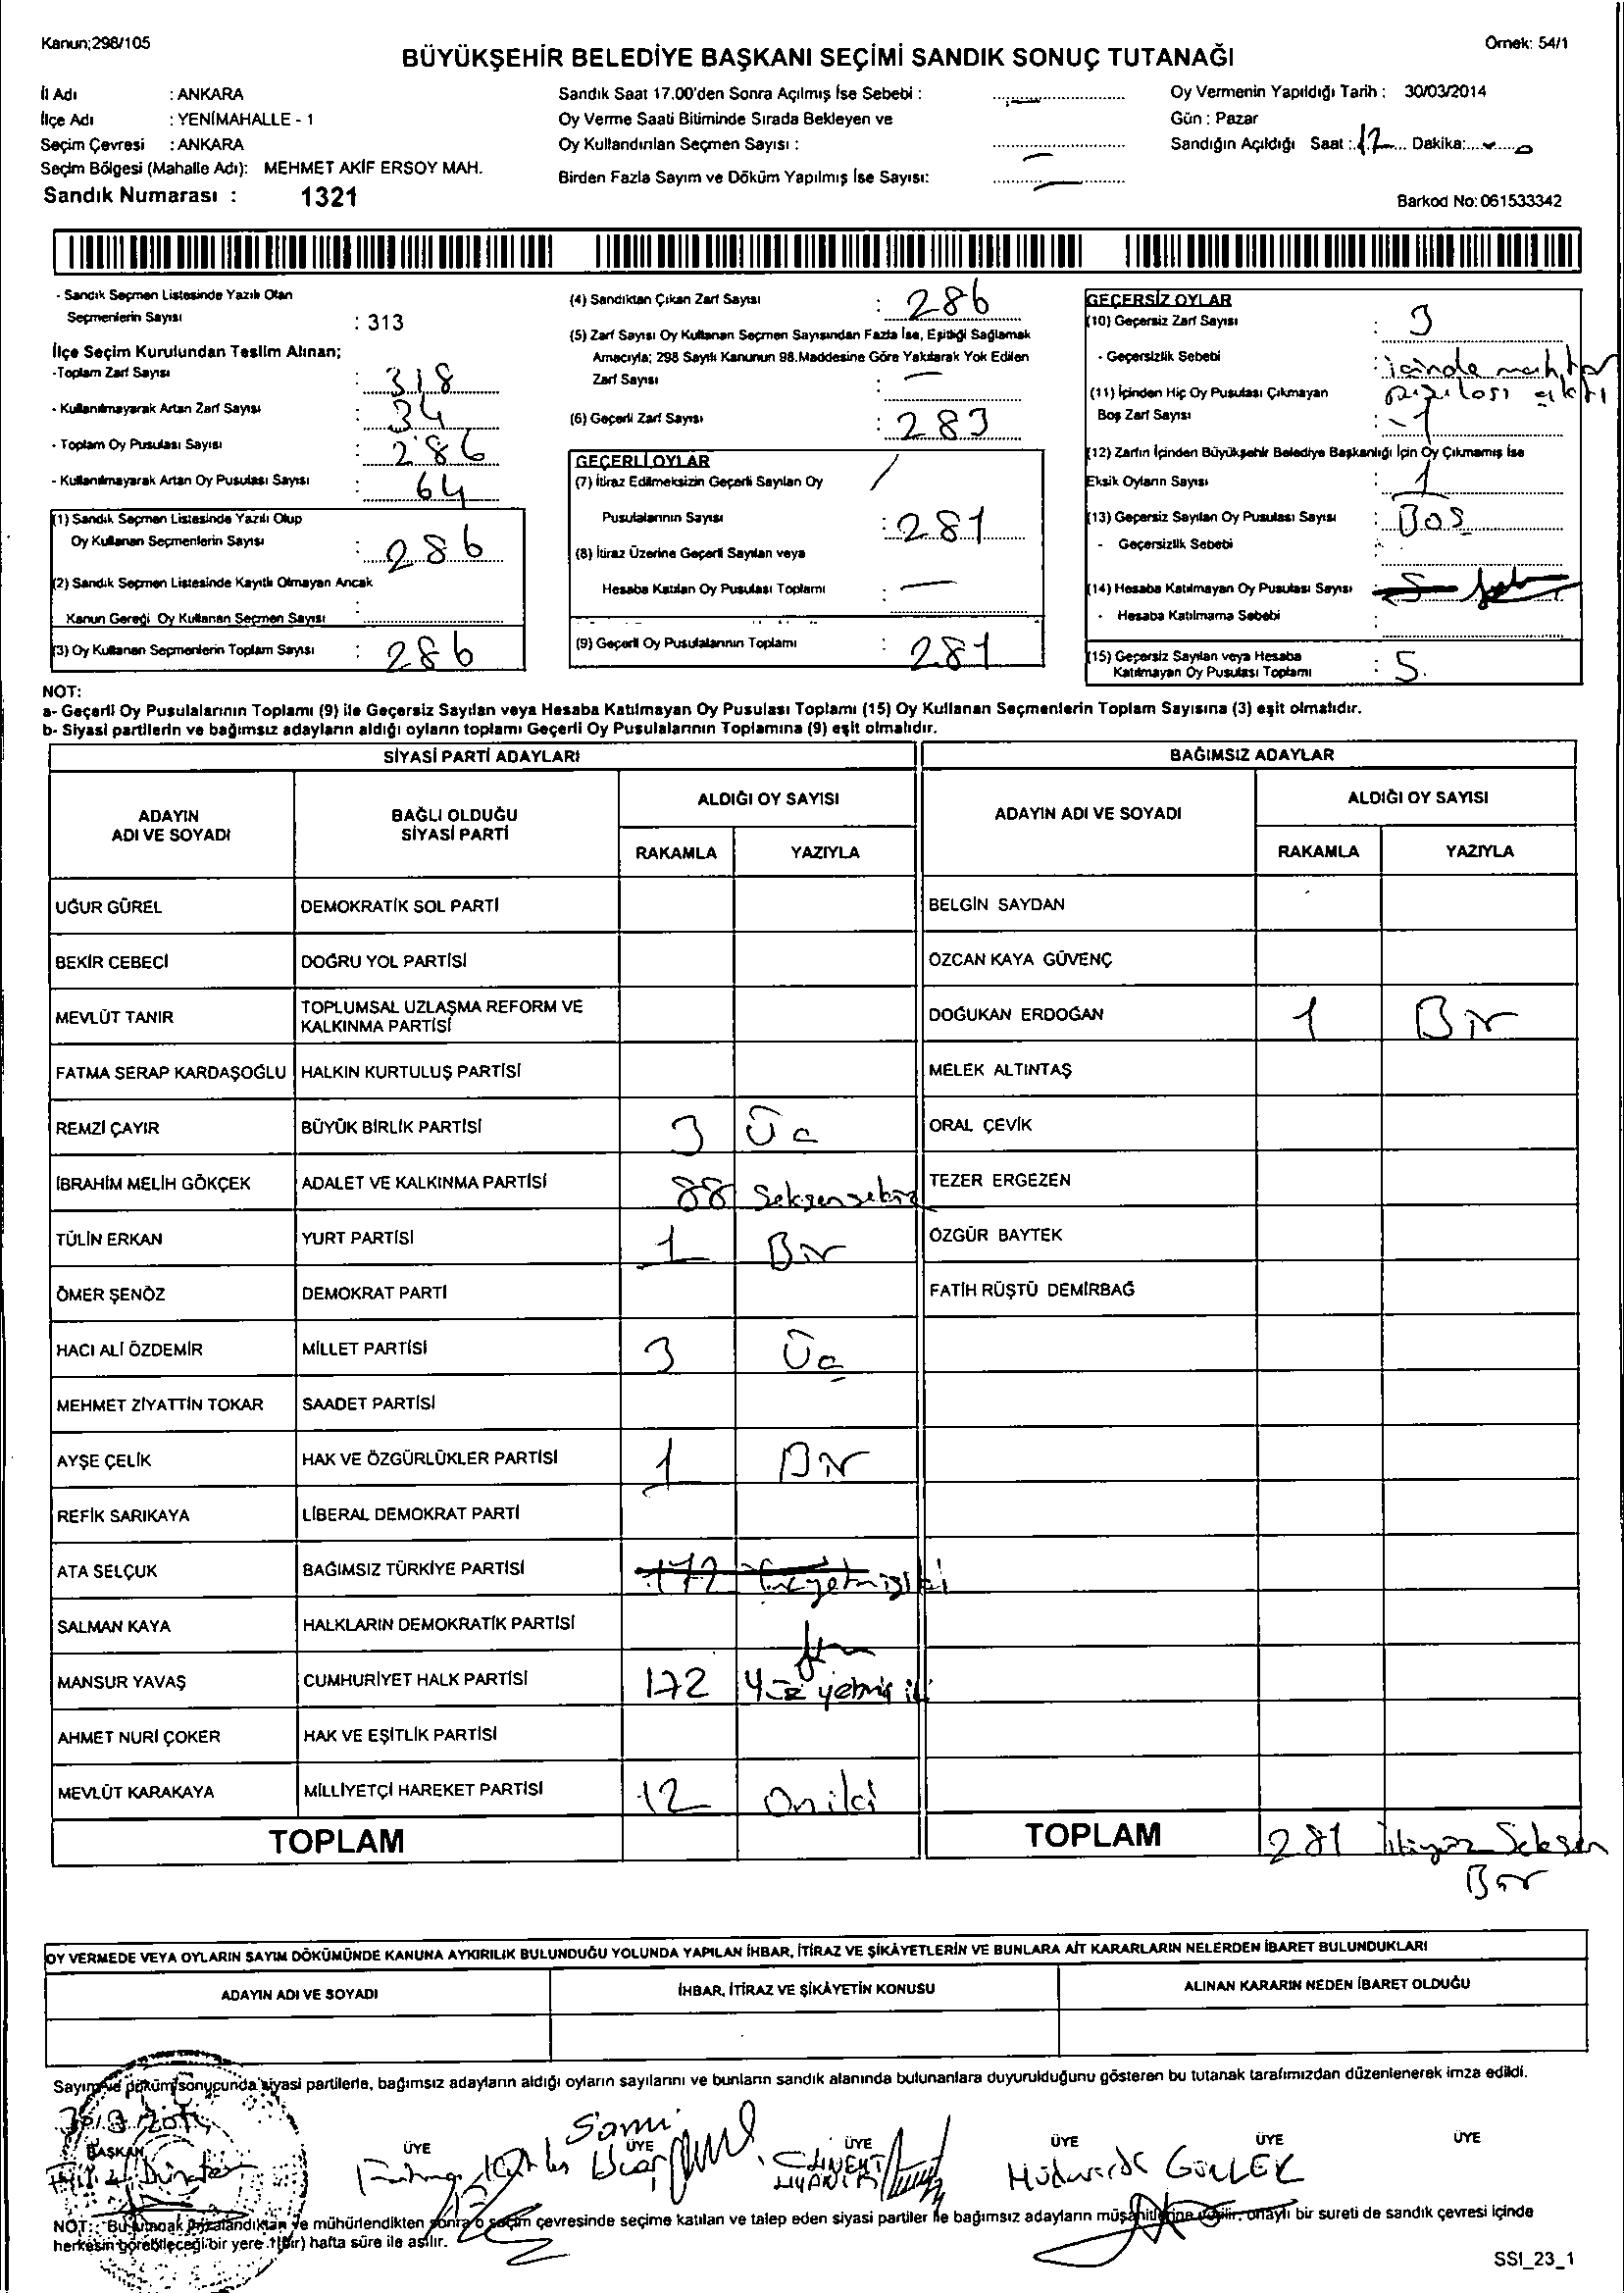 Kanun;298/105
Örnek: 54/1
BÜYÜKŞEHİR BELEDİYE BAŞKANI SEÇİMİ SANDIK SONUÇ TUTANAĞI
İl Adı : ANKARA
İlçe Adı : YENİMAHALLE - 1
Seçim Çevresi : ANKARA
Seçim Bölgesi (Mahalle Adı): MEHMET AKİF ERSOY MAH.
Sandık Numarası : 1321
Sandık Saat 17.00'den Sonra Açılmış İse Sebebi :
Oy Verme Saati Bitiminde Sırada Bekleyen ve
Oy Kullandırılan Seçmen Sayısı :
Birden Fazla Sayım ve Döküm Yapılmış İse Sayısı:
Oy Vermenin Yapıldığı Tarih : 30/03/2014
Gün : Pazar
Sandığın Açıldığı Saat : 17 Dakika:
Barkod No: 061533342
- Sandık Seçmen Listesinde Yazılı Olan
Seçmenlerin Sayısı : 313
İlçe Seçim Kurulundan Teslim Alınan;
-Toplam Zarf Sayısı : 318
- Kullanılmayarak Artan Zarf Sayısı : 34
- Toplam Oy Pusulası Sayısı : 286
- Kullanılmayarak Artan Oy Pusulası Sayısı : 64
(1) Sandık Seçmen Listesinde Yazılı Olup
Oy Kullanan Seçmenlerin Sayısı : 286
(2) Sandık Seçmen Listesinde Kayıtlı Olmayan Ancak
Kanun Gereği Oy Kullanan Seçmen Sayısı :
(3) Oy Kullanan Seçmenlerin Toplam Sayısı : 286
(4) Sandıktan Çıkan Zarf Sayısı : 286
(5) Zarf Sayısı Oy Kullanan Seçmen Sayısından Fazla İse, Eşitliği Sağlamak
Amacıyla; 298 Sayılı Kanunun 98.Maddesine Göre Yakılarak Yok Edilen
Zarf Sayısı : —
(6) Geçerli Zarf Sayısı : 283
GEÇERLİ OYLAR
(7) İtiraz Edilmeksizin Geçerli Sayılan Oy
Pusulalarının Sayısı : 281
(8) İtiraz Üzerine Geçerli Sayılan veya
Hesaba Katılan Oy Pusulası Toplamı : —
(9) Geçerli Oy Pusulalarının Toplamı : 281
GEÇERSİZ OYLAR
(10) Geçersiz Zarf Sayısı : 3
- Geçersizlik Sebebi : içinde muhtar
(11) İçinden Hiç Oy Pusulası Çıkmayan
Boş Zarf Sayısı : 1
(12) Zarfın İçinden Büyükşehir Belediye Başkanlığı İçin Oy Çıkmamış İse
Eksik Oyların Sayısı : 1
(13) Geçersiz Sayılan Oy Pusulası Sayısı : Boş
- Geçersizlik Sebebi :
(14) Hesaba Katılmayan Oy Pusulası Sayısı 5
- Hesaba Katılmama Sebebi :
(15) Geçersiz Sayılan veya Hesaba
Katılmayan Oy Pusulası Toplamı : 5.
NOT:
a- Geçerli Oy Pusulalarının Toplamı (9) ile Geçersiz Sayılan veya Hesaba Katılmayan Oy Pusulası Toplamı (15) Oy Kullanan Seçmenlerin Toplam Sayısına (3) eşit olmalıdır.
b- Siyasi partilerin ve bağımsız adayların aldığı oyların toplamı Geçerli Oy Pusulalarının Toplamına (9) eşit olmalıdır.
SİYASİ PARTİ ADAYLARI
ADAYIN ADI VE SOYADI
BAĞLI OLDUĞU SİYASİ PARTİ
ALDIĞI OY SAYISI
RAKAMLA YAZIYLA
UĞUR GÜREL DEMOKRATİK SOL PARTİ
BEKİR CEBECİ DOĞRU YOL PARTİSİ
MEVLÜT TANIR TOPLUMSAL UZLAŞMA REFORM VE
KALKINMA PARTİSİ
FATMA SERAP KARDAŞOĞLU HALKIN KURTULUŞ PARTİSİ
REMZİ ÇAYIR BÜYÜK BİRLİK PARTİSİ 3 Üç
İBRAHİM MELİH GÖKÇEK ADALET VE KALKINMA PARTİSİ 88 Seksensekiz
TÜLİN ERKAN YURT PARTİSİ 1 Bir
ÖMER ŞENÖZ DEMOKRAT PARTİ
HACI ALİ ÖZDEMİR MİLLET PARTİSİ 3 Üç
MEHMET ZİYATTİN TOKAR SAADET PARTİSİ
AYŞE ÇELİK HAK VE ÖZGÜRLÜKLER PARTİSİ 1 Bir
REFİK SARIKAYA LİBERAL DEMOKRAT PARTİ
ATA SELÇUK BAĞIMSIZ TÜRKİYE PARTİSİ 172 Yüzyetmişiki
SALMAN KAYA HALKLARIN DEMOKRATİK PARTİSİ
MANSUR YAVAŞ CUMHURİYET HALK PARTİSİ 172 Yüz yetmiş iki
AHMET NURİ ÇOKER HAK VE EŞİTLİK PARTİSİ
MEVLÜT KARAKAYA MİLLİYETÇİ HAREKET PARTİSİ 12 Oniki
TOPLAM
BAĞIMSIZ ADAYLAR
ADAYIN ADI VE SOYADI
ALDIĞI OY SAYISI
RAKAMLA YAZIYLA
BELGİN SAYDAN
ÖZCAN KAYA GÜVENÇ
DOĞUKAN ERDOĞAN 1 Bir
MELEK ALTINTAŞ
ORAL ÇEVİK
TEZER ERGEZEN
ÖZGÜR BAYTEK
FATİH RÜŞTÜ DEMİRBAĞ
TOPLAM 281 İkiyüz Seksen
Bir
OY VERMEDE VEYA OYLARIN SAYIM DÖKÜMÜNDE KANUNA AYKIRILIK BULUNDUĞU YOLUNDA YAPILAN İHBAR, İTİRAZ VE ŞİKÂYETLERİN VE BUNLARA AİT KARARLARIN NELERDEN İBARET BULUNDUKLARI
ADAYIN ADI VE SOYADI İHBAR, İTİRAZ VE ŞİKÂYETİN KONUSU ALINAN KARARIN NEDEN İBARET OLDUĞU
Sayım ve döküm sonucunda siyasi partilerle, bağımsız adayların aldığı oyların sayılarını ve bunların sandık alanında bulunanlara duyurulduğunu gösteren bu tutanak tarafımızdan düzenlenerek imza edildi.
BAŞKAN ÜYE ÜYE ÜYE ÜYE ÜYE ÜYE
Sami
GÜLLEK
NOT: Bu tutanak imzalandıktan ve mühürlendikten sonra o seçim çevresinde seçime katılan ve talep eden siyasi partiler ile bağımsız adayların müşahitlerine verilir, onaylı bir sureti de sandık çevresi içinde
herkesin görebileceği bir yere 1(bir) hafta süre ile asılır.
SSI_23_1